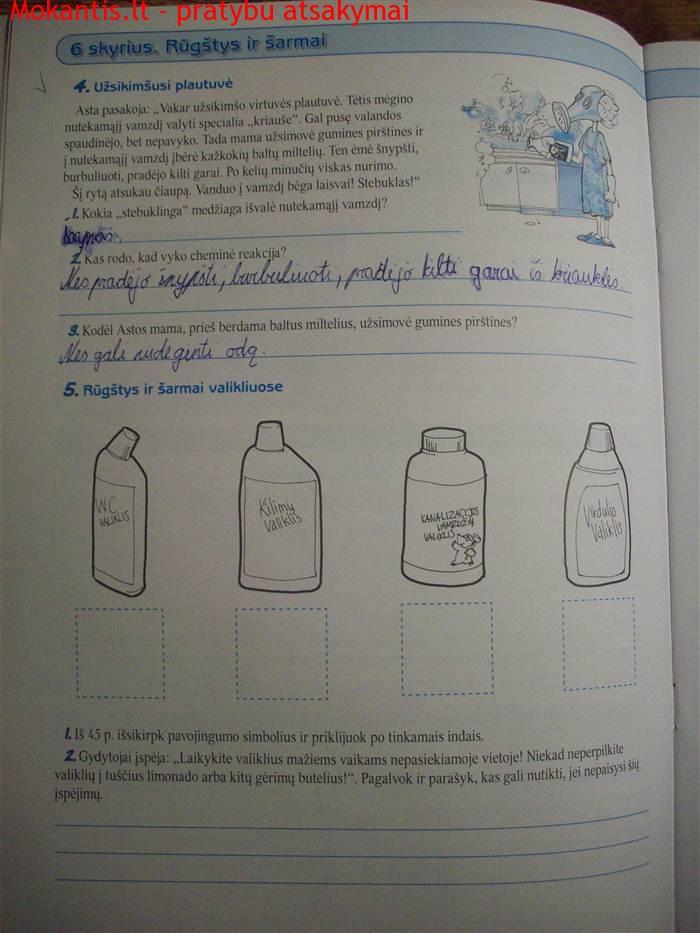 Mokantis.lt - pratybu atsakymai
6 skyrius. Rūgštys ir šarmai
4. Užsikimšusi plautuvė
Asta pasakoja: „Vakar užsikimšo virtuvės plautuvė. Tėtis mėgino
nutekamąjį vamzdį valyti specialia „kriauše“. Gal pusę valandos
spaudinėjo, bet nepavyko. Tada mama užsimovė gumines pirštines ir
į nutekamąjį vamzdį įbėrė kažkokių baltų miltelių. Ten ėmė šnypšti,
burbuliuoti, pradėjo kilti garai. Po kelių minučių viskas nurimo.
Šį rytą atsukau čiaupą. Vanduo į vamzdį bėga laisvai! Stebuklas!“
1. Kokia „stebuklinga“ medžiaga išvalė nutekamąjį vamzdį?
2. Kas rodo, kad vyko cheminė reakcija?
Nes pradėjo šnypšti, burbuliuoti, pradėjo kilti garai iš kriauklės.
3. Kodėl Astos mama, prieš berdama baltus miltelius, užsimovė gumines pirštines?
Nes gali nudeginti odą.
5. Rūgštys ir šarmai valikliuose
WC
VALIKLIS
Kilimų
Valiklis
KANALIZACIJOS
VAMZDŽIŲ
VALIKLIS
Virdulio
Valiklis
1. Iš 45 p. išsikirpk pavojingumo simbolius ir priklijuok po tinkamais indais.
2. Gydytojai įspėja: „Laikykite valiklius mažiems vaikams nepasiekiamoje vietoje! Niekad neperpilkite
valiklių į tuščius limonado arba kitų gėrimų butelius!“. Pagalvok ir parašyk, kas gali nutikti, jei nepaisysi šių
įspėjimų.